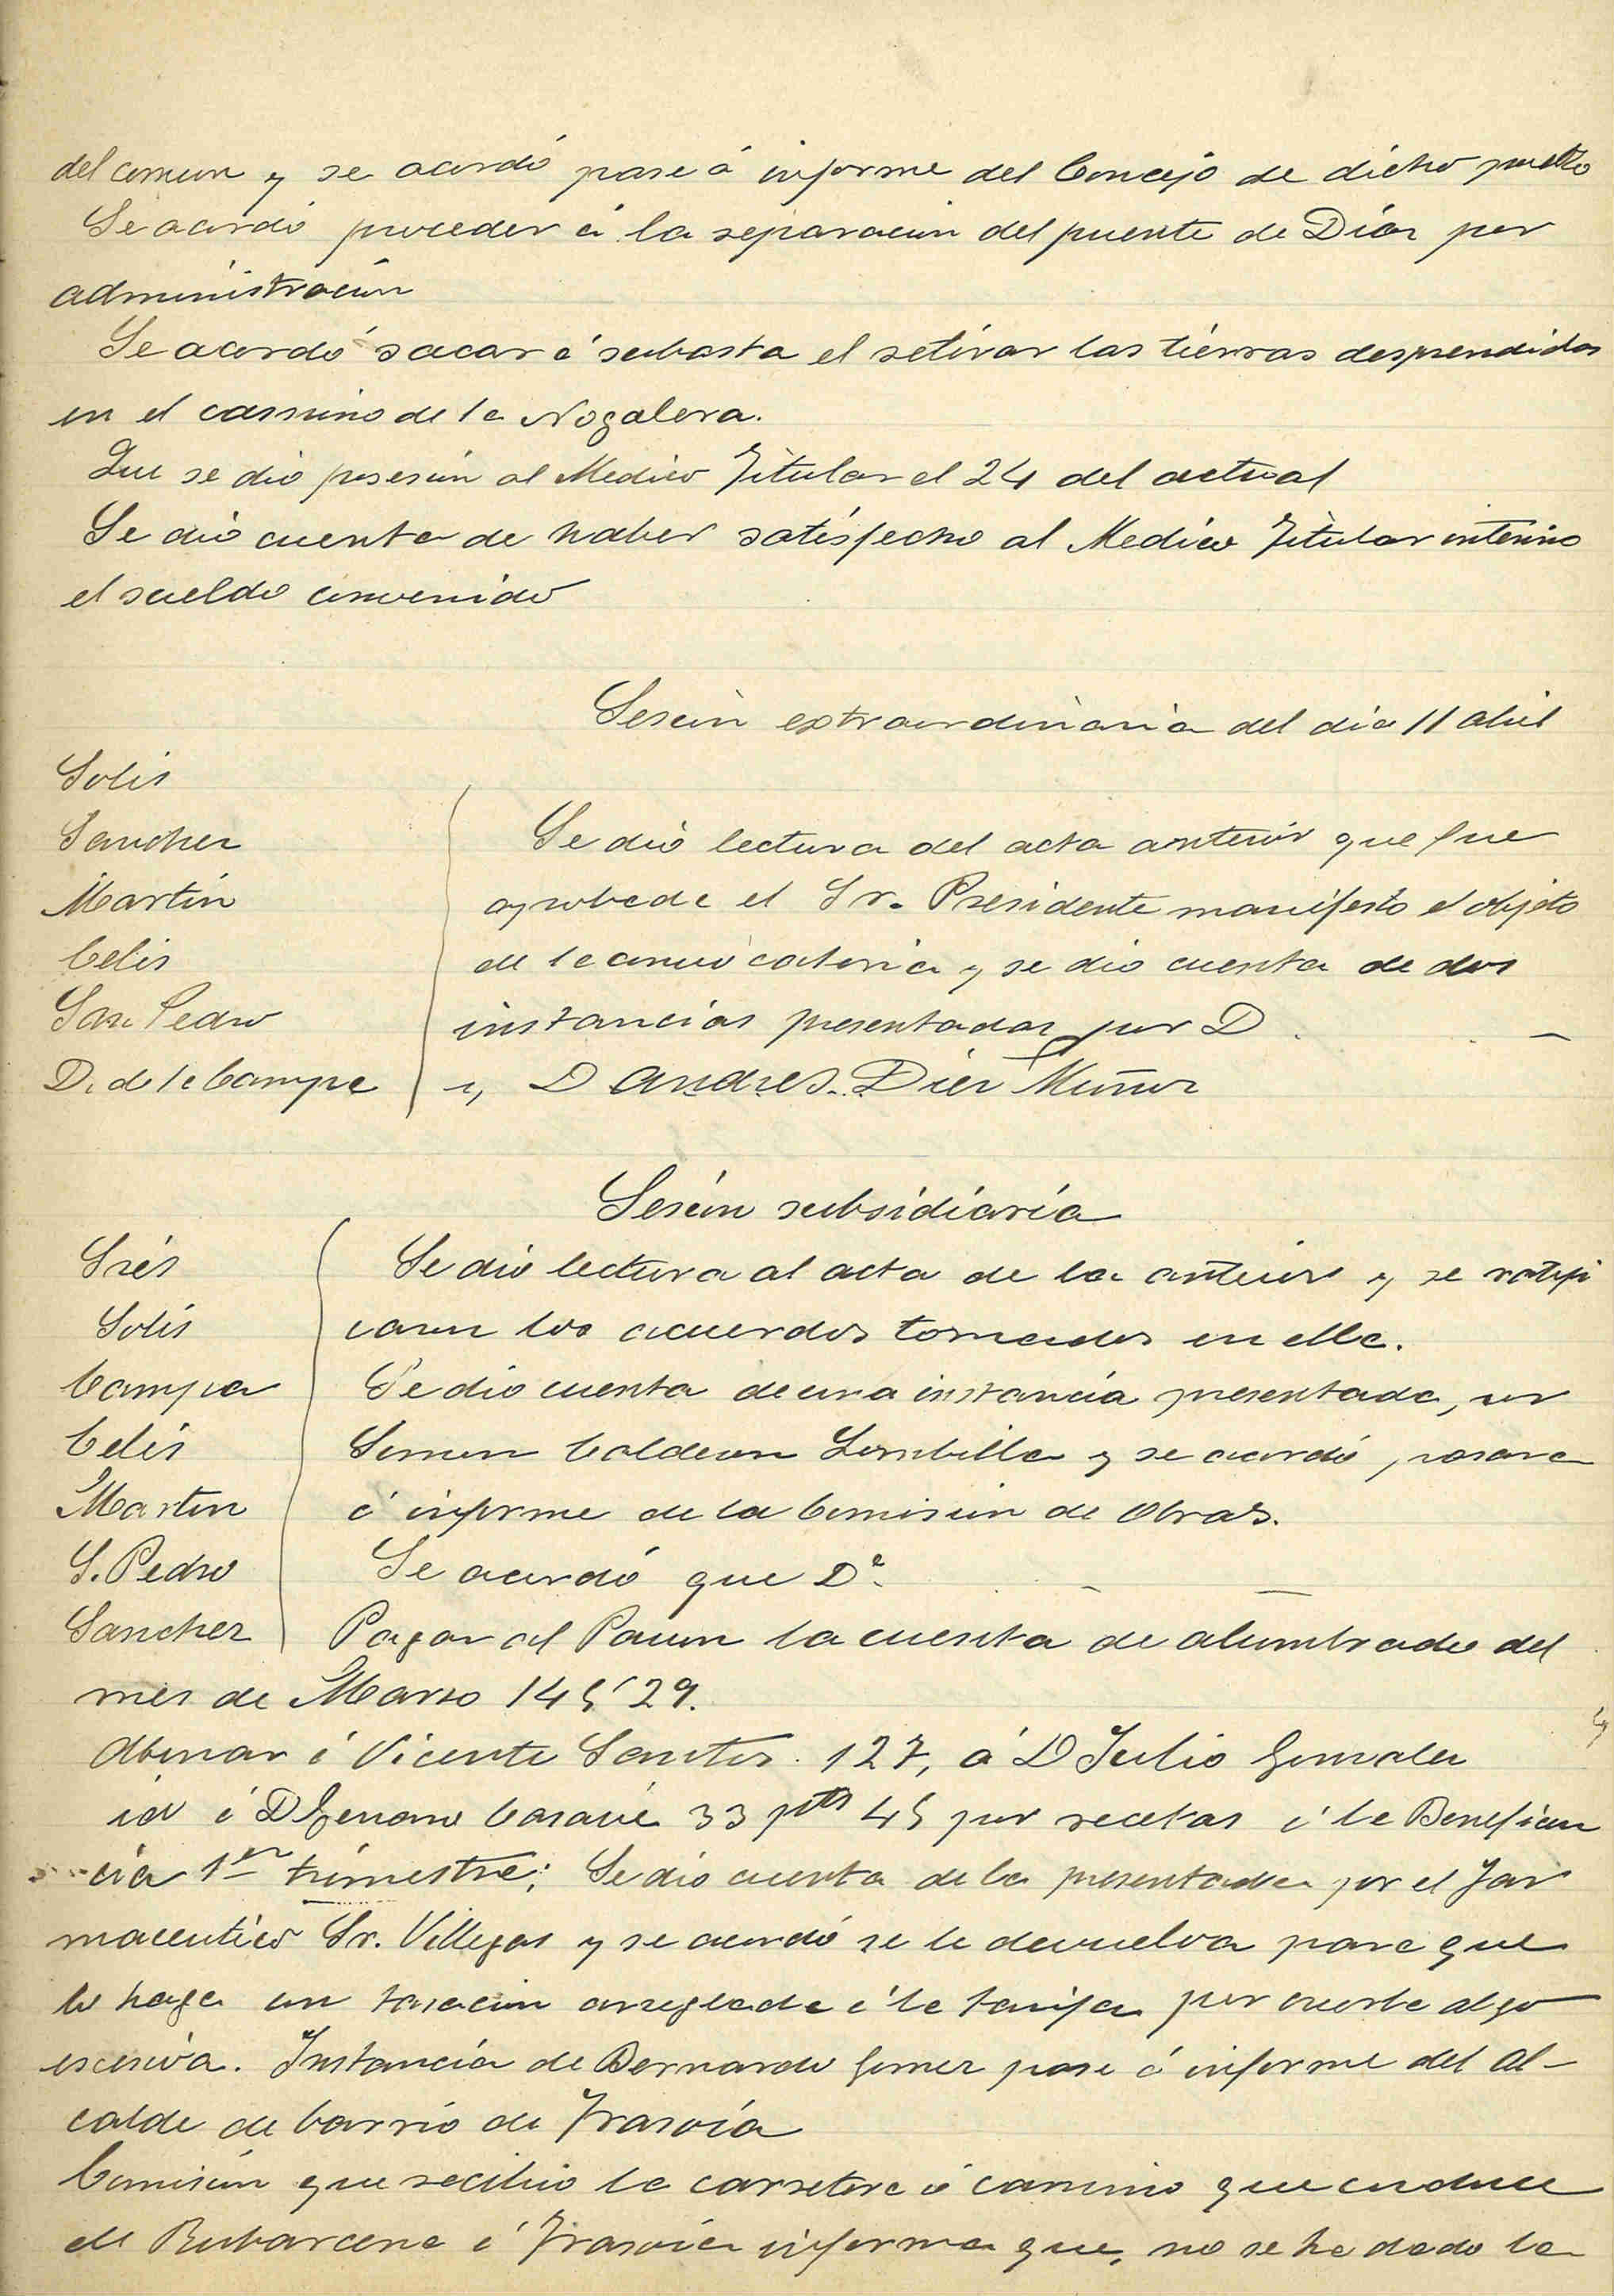 del comun y se acordó pase á informe del Concejo de dicho pueblo
Se acordó proceder á la reparacion del puente de Díaz por
administracion
Se acordó sacar á subasta el retirar las tierras desprendidas
en el camino de la Nogalera.
Que se dió posesión al Medico Titular el 24 del actual
Se dió cuenta de haber satisfecho al Medico Titular interino
el sueldo convenido
Sesión extraordinaria del dia 11 abril
Solis
Sanchez
Martin
Celis
San Pedro
D. de la Campa
Se dió lectura del acta anterior que fue
aprobada el Sr. Presidente manifestó el objeto
de la convocatoria y se dió cuenta de dos
instancias presentadas por D.
y D Andres Diez Muñoz
Sesión subsidiaria
Sres
Solis
Campa
Celis
Martin
S. Pedro
Sanchez
Se dió lectura al acta de la anterior y se ratifi
caron los acuerdos tomados en ella.
Se dió cuenta de una instancia presentada por
Simon Calderon Lombilla y se acordó pasara
á informe de la Comision de Obras.
Se acordó que Dº.
Pagar al Pavon la cuenta de alumbrado del
mes de Marzo 145'29.
Abonar á Vicente Santos 127, á D Julio Gonzalez
id á D Genaro Casavie 33 pts 45 por recetas á la Beneficen
cia 1er trimestre; Se dió cuenta de la presentada por el Far
maceutico Sr. Villegas y se acordó se le devuelva para que
lo haga en tasacion arreglada á la tarifa por creerla algo
escesiva. Instancia de Bernardo Gomez pase á informe del Al-
calde de barrio de Trasvía
Comisión que recibió la carretera ó camino que conduce
de Rubarcena á Trasvía informa que, no se ha dado la